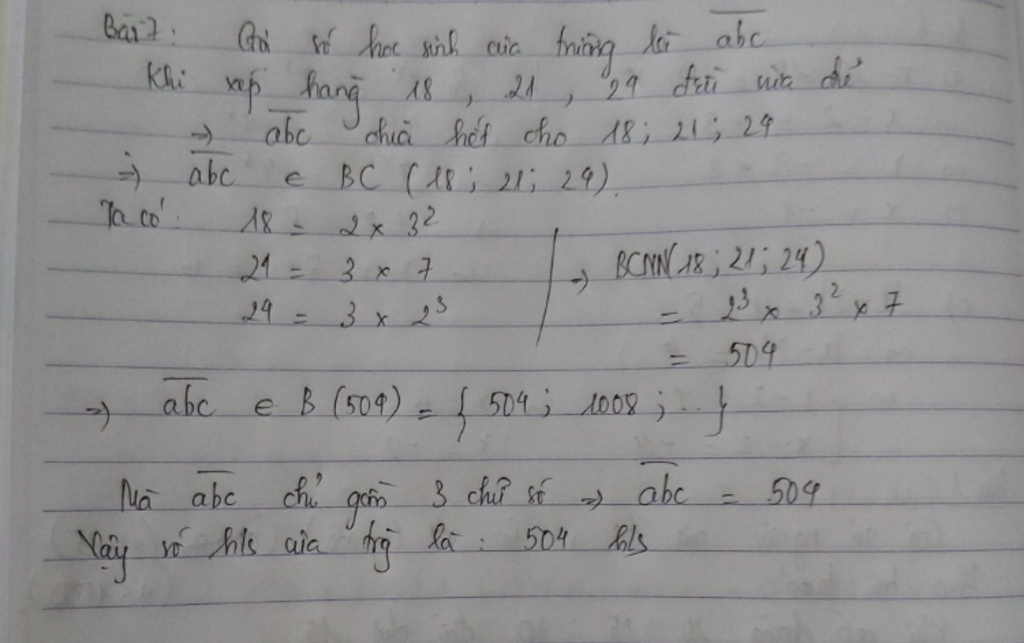 Bài 7: Gọi số học sinh của trường là abc
Khi xếp hàng 18, 21, 24 đều vừa đủ
=> abc chia hết cho 18; 21; 24
=> abc ∈ BC (18; 21; 24).
Ta có: 18 = 2 x 3²
21 = 3 x 7
24 = 3 x 2³
=> BCNN(18; 21; 24)
= 2³ x 3² x 7
= 504
=> abc ∈ B (504) = { 504; 1008; .. }
Mà abc chỉ gồm 3 chữ số => abc = 504
Vậy số h/s của trg là: 504 h/s